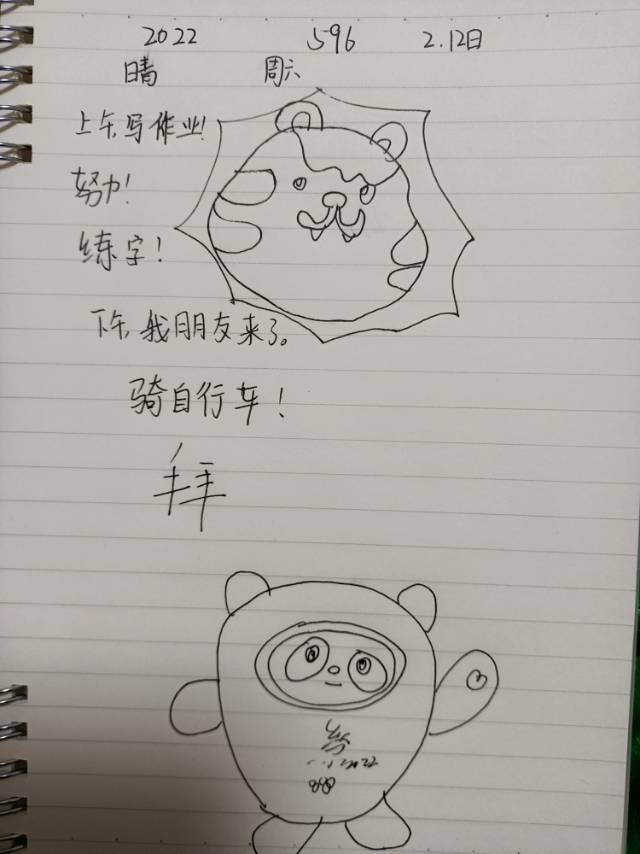 2022 596 2.12日
晴 周六
上午写作业!
努力!
练字!
下午,我朋友来了。
骑自行车!
拜